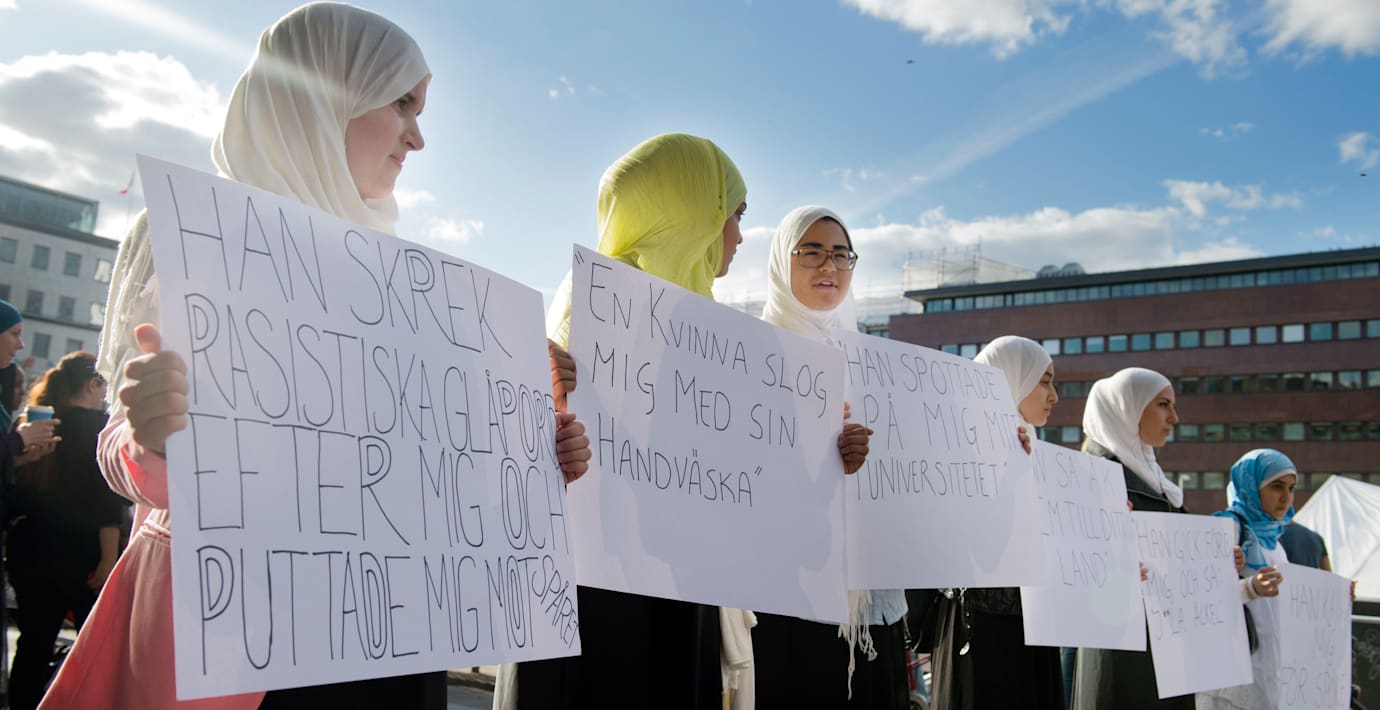 HAN SKREK
RASISTISKA GLÅPORD
EFTER MIG OCH
PUTTADE MIG MOT SPÅRET
"EN KVINNA SLOG
MIG MED SIN
HANDVÄSKA"
"HAN SPOTTADE
PÅ MIG MITT
I UNIVERSITETET"
SA
TILL
LAND"
HAN GICK
MIG, OCH SA:
ÄCKEL"
HAN
MIG
FÖR